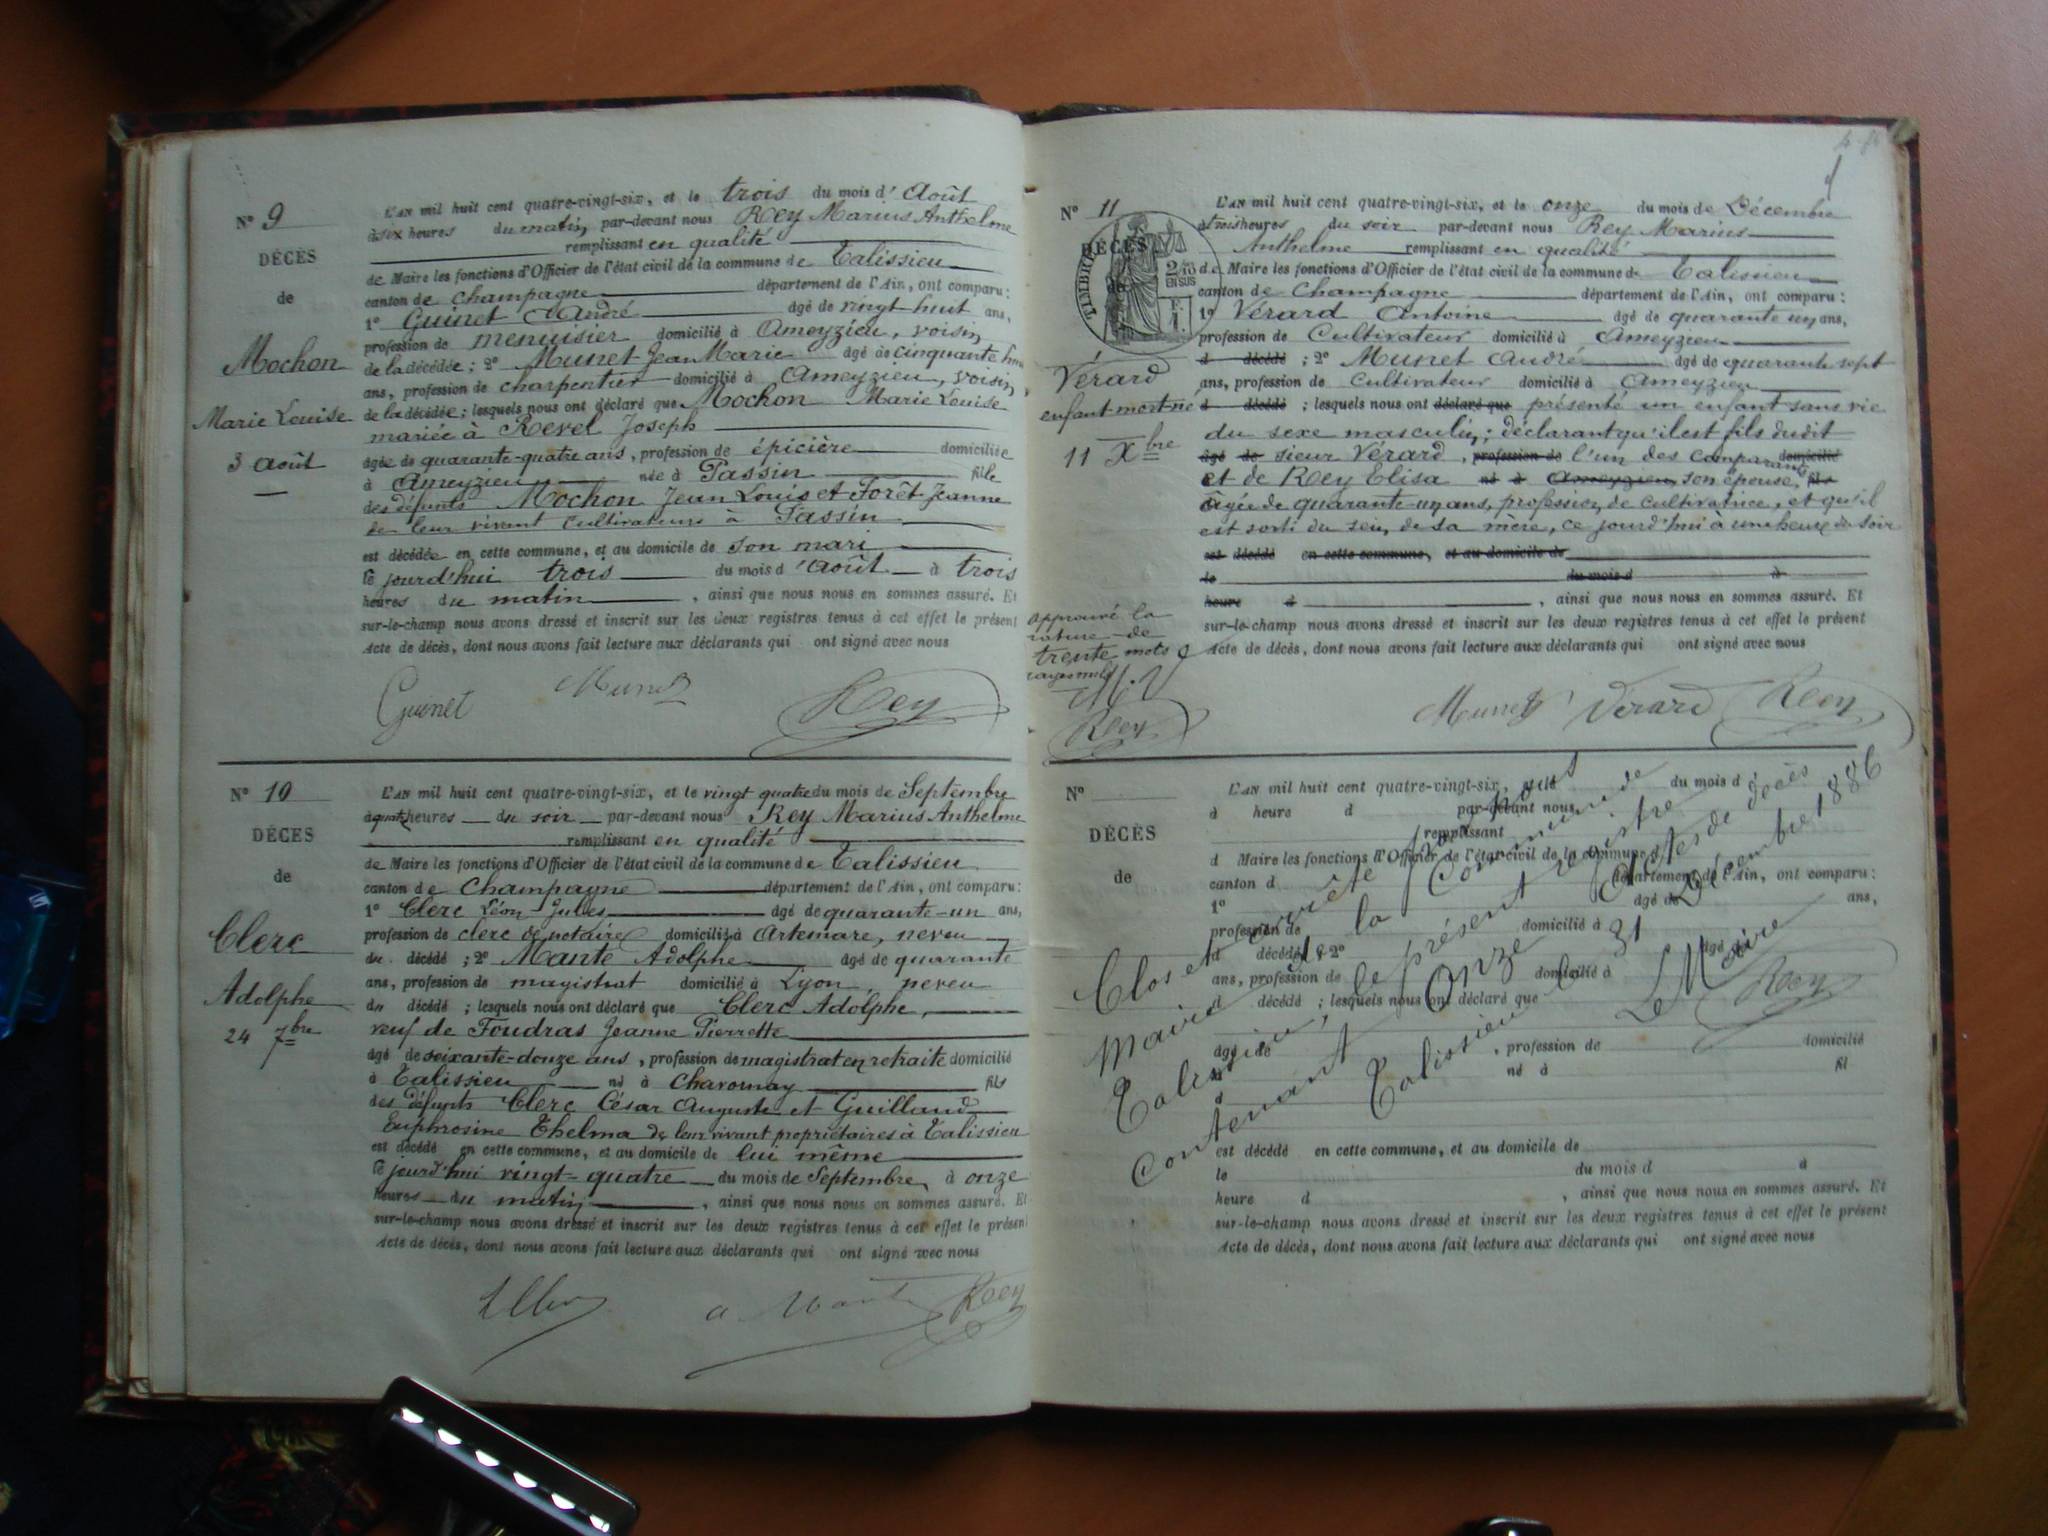 N° 9
DÉCÈS
de
Mochon
Marie Louise
3 août
L'AN mil huit cent quatre-vingt-six, et le trois du mois d'Août
à six heures du matin, par-devant nous Rey Marius Anthelme
remplissant en qualité
de Maire les fonctions d'Officier de l'état civil de la commune de Talissieu
canton de Champagne département de l'Ain, ont comparu :
1° Guinet André âgé de vingt-huit ans,
profession de menuisier domicilié à Ameyzieu, voisin
de la décédée ; 2° Munet Jean Marie âgé de cinquante
ans, profession de charpentier domicilié à Ameyzieu, voisin
de la décédée ; lesquels nous ont déclaré que Mochon Marie Louise
mariée à Revel Joseph
âgée de quarante-quatre ans, profession de épicière domiciliée
à Ameyzieu née à Passin fille
des défunts Mochon Jean Louis et Forêt Jeanne
de leur vivant cultivateurs à Passin
est décédée en cette commune, et au domicile de son mari
le jourd'hui trois du mois d'Août à trois
heures du matin, ainsi que nous nous en sommes assuré. Et
sur-le-champ nous avons dressé et inscrit sur les deux registres tenus à cet effet le présent
Acte de décès, dont nous avons fait lecture aux déclarants qui ont signé avec nous
Guinet Munet Rey
N° 10
DÉCÈS
de
Clerc
Adolphe
24 7bre
L'AN mil huit cent quatre-vingt-six, et le vingt quatre du mois de Septembre
à quatre heures du soir par-devant nous Rey Marius Anthelme
remplissant en qualité
de Maire les fonctions d'Officier de l'état civil de la commune de Talissieu
canton de Champagne département de l'Ain, ont comparu :
1° Clerc Léon Jules âgé de quarante-un ans,
profession de clerc de notaire domicilié à Artemare, neveu
du décédé ; 2° Mante Adolphe âgé de quarante
ans, profession de magistrat domicilié à Lyon, neveu
du décédé ; lesquels nous ont déclaré que Clerc Adolphe,
veuf de Foudras Jeanne Pierrette
âgé de soixante-douze ans, profession de magistrat en retraite domicilié
à Talissieu né à Chavornay fils
des défunts Clerc César Auguste et Guilland
Euphrosine Thelma de leur vivant propriétaires à Talissieu
est décédé en cette commune, et au domicile de lui même
le jourd'hui vingt-quatre du mois de Septembre, à onze
heures du matin, ainsi que nous nous en sommes assuré. Et
sur-le-champ nous avons dressé et inscrit sur les deux registres tenus à cet effet le présent
Acte de décès, dont nous avons fait lecture aux déclarants qui ont signé avec nous
a Mante Rey
N° 11
TIMBRE
2/10 EN SUS
DÉCÈS
de
Vérard
enfant mort-né
11 Xbre
L'AN mil huit cent quatre-vingt-six, et le onze du mois de Décembre
à trois heures du soir par-devant nous Rey Marius
Anthelme remplissant en qualité
de Maire les fonctions d'Officier de l'état civil de la commune de Talissieu
canton de Champagne département de l'Ain, ont comparu :
1° Vérard Antoine âgé de quarante un ans,
profession de Cultivateur domicilié à Ameyzieu
d décédé ; 2° Munet André âgé de quarante sept
ans, profession de Cultivateur domicilié à Ameyzieu
d décédé ; lesquels nous ont déclaré que présenté un enfant sans vie
du sexe masculin; déclarant qu'il est fils dudit
âgé de sieur Vérard, profession de l'un des comparants domicilié
et de Rey Elisa né à Ameyzieu, son épouse, fils
âgée de quarante-un ans, profession de cultivatrice, et qu'il
est sorti du sein de sa mère, ce jourd'hui à une heure du soir
est décédé en cette commune, et au domicile de
le du mois d à
heure d , ainsi que nous nous en sommes assuré. Et
sur-le-champ nous avons dressé et inscrit sur les deux registres tenus à cet effet le présent
Acte de décès, dont nous avons fait lecture aux déclarants qui ont signé avec nous
Approuvé la
rature de
trente mots
rayés nuls
M. V
Rey
Munet Vérard Rey
N°
DÉCÈS
de
L'AN mil huit cent quatre-vingt-six, et le du mois d
à heure d par-devant nous
remplissant
d Maire les fonctions d'Officier de l'état civil de la commune d
canton d département de l'Ain, ont comparu :
1° âgé de ans,
profession de domicilié à
d décédé ; 2° âgé de
ans, profession de domicilié à
d décédé ; lesquels nous ont déclaré que
âgé de , profession de domicilié
à né à fil
d
est décédé en cette commune, et au domicile de
le du mois d à
heure d , ainsi que nous nous en sommes assuré. Et
sur-le-champ nous avons dressé et inscrit sur les deux registres tenus à cet effet le présent
Acte de décès, dont nous avons fait lecture aux déclarants qui ont signé avec nous
Clos et arrêté par nous
Maire de la Commune de
Talissieu, le présent registre
contenant Onze Actes de décès
Talissieu le 31 Décembre 1886
Le Maire
Rey